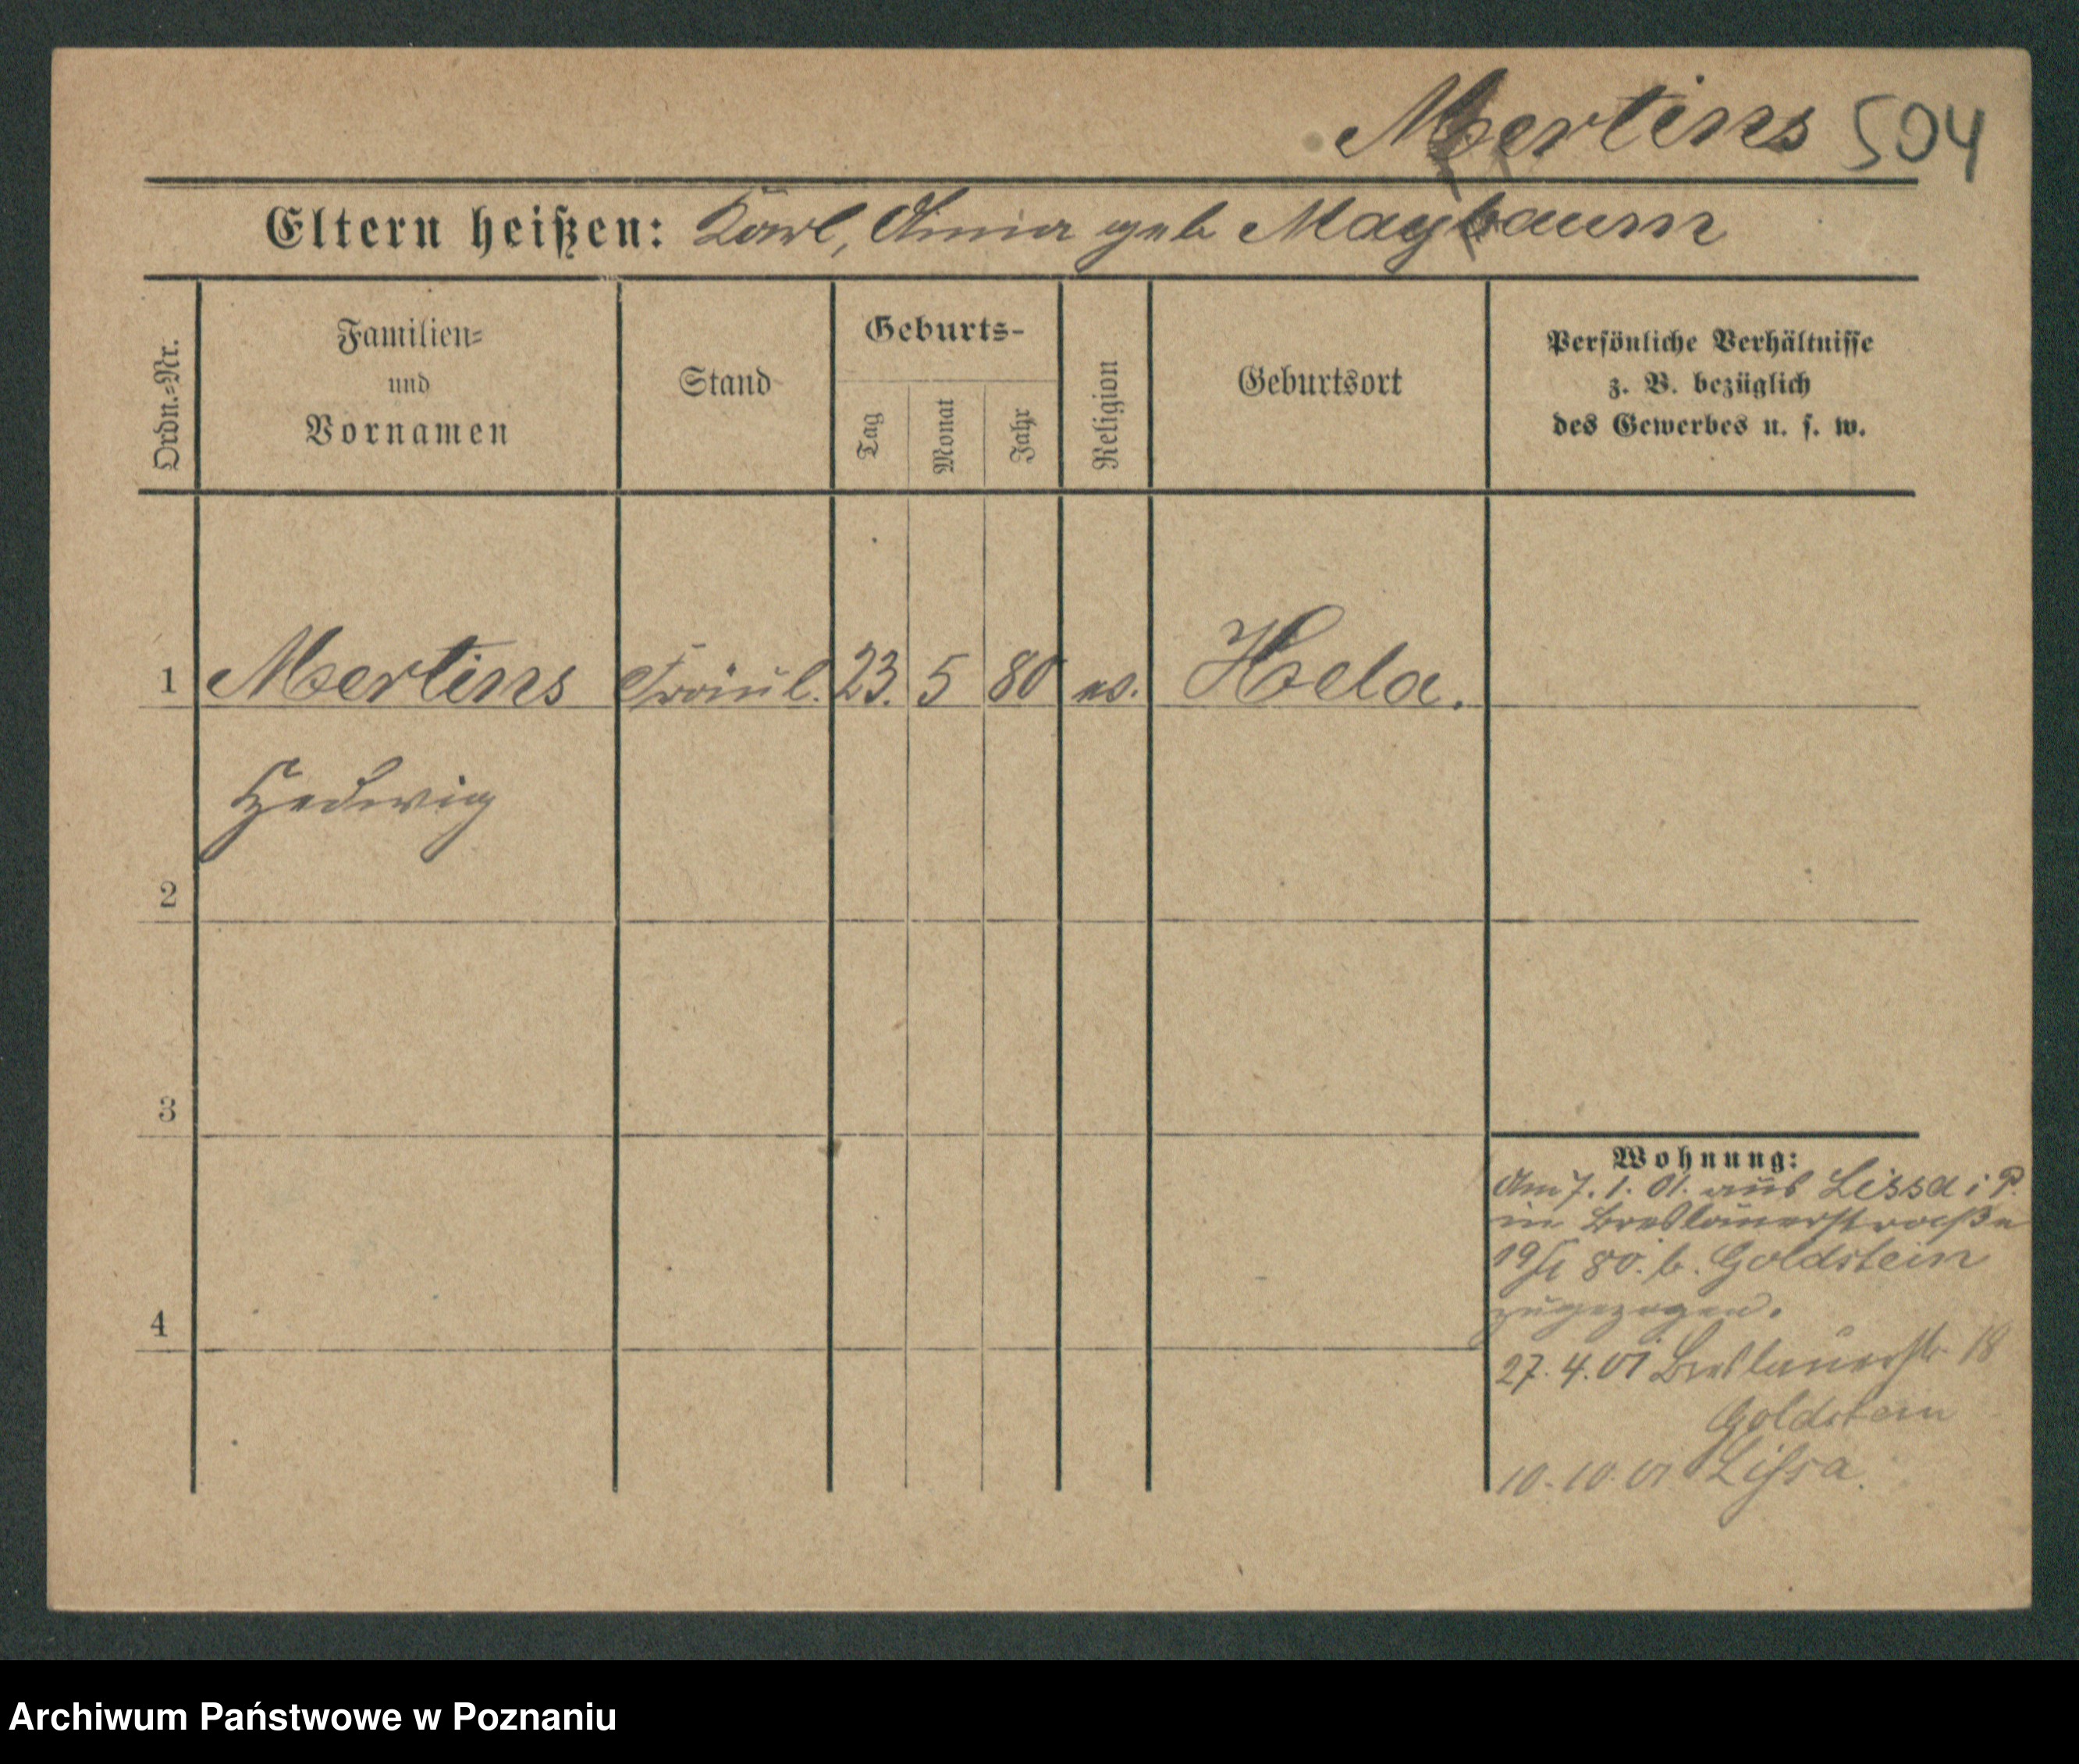 Mertins 504
Eltern heißen: Karl, Anna geb Maybaum
Ordn.=Nr.
Familien=
und
Vornamen
Stand
Geburts-
Tag
Monat
Jahr
Religion
Geburtsort
Persönliche Verhältnisse
z. B. bezüglich
des Gewerbes u. s. w.
1 Mertins Fräul. 23. 5 80 ev. Hela.
Hedwig
2
3
4
Wohnung:
Am 7. 1. 01. aus Lissa i P.
in Breslauerstraße
19/I bei b. Goldstein
zugezogen.
27. 4. 01 Breslauerstr 18
Goldstein
10. 10. 01 Lissa.
Archiwum Państwowe w Poznaniu